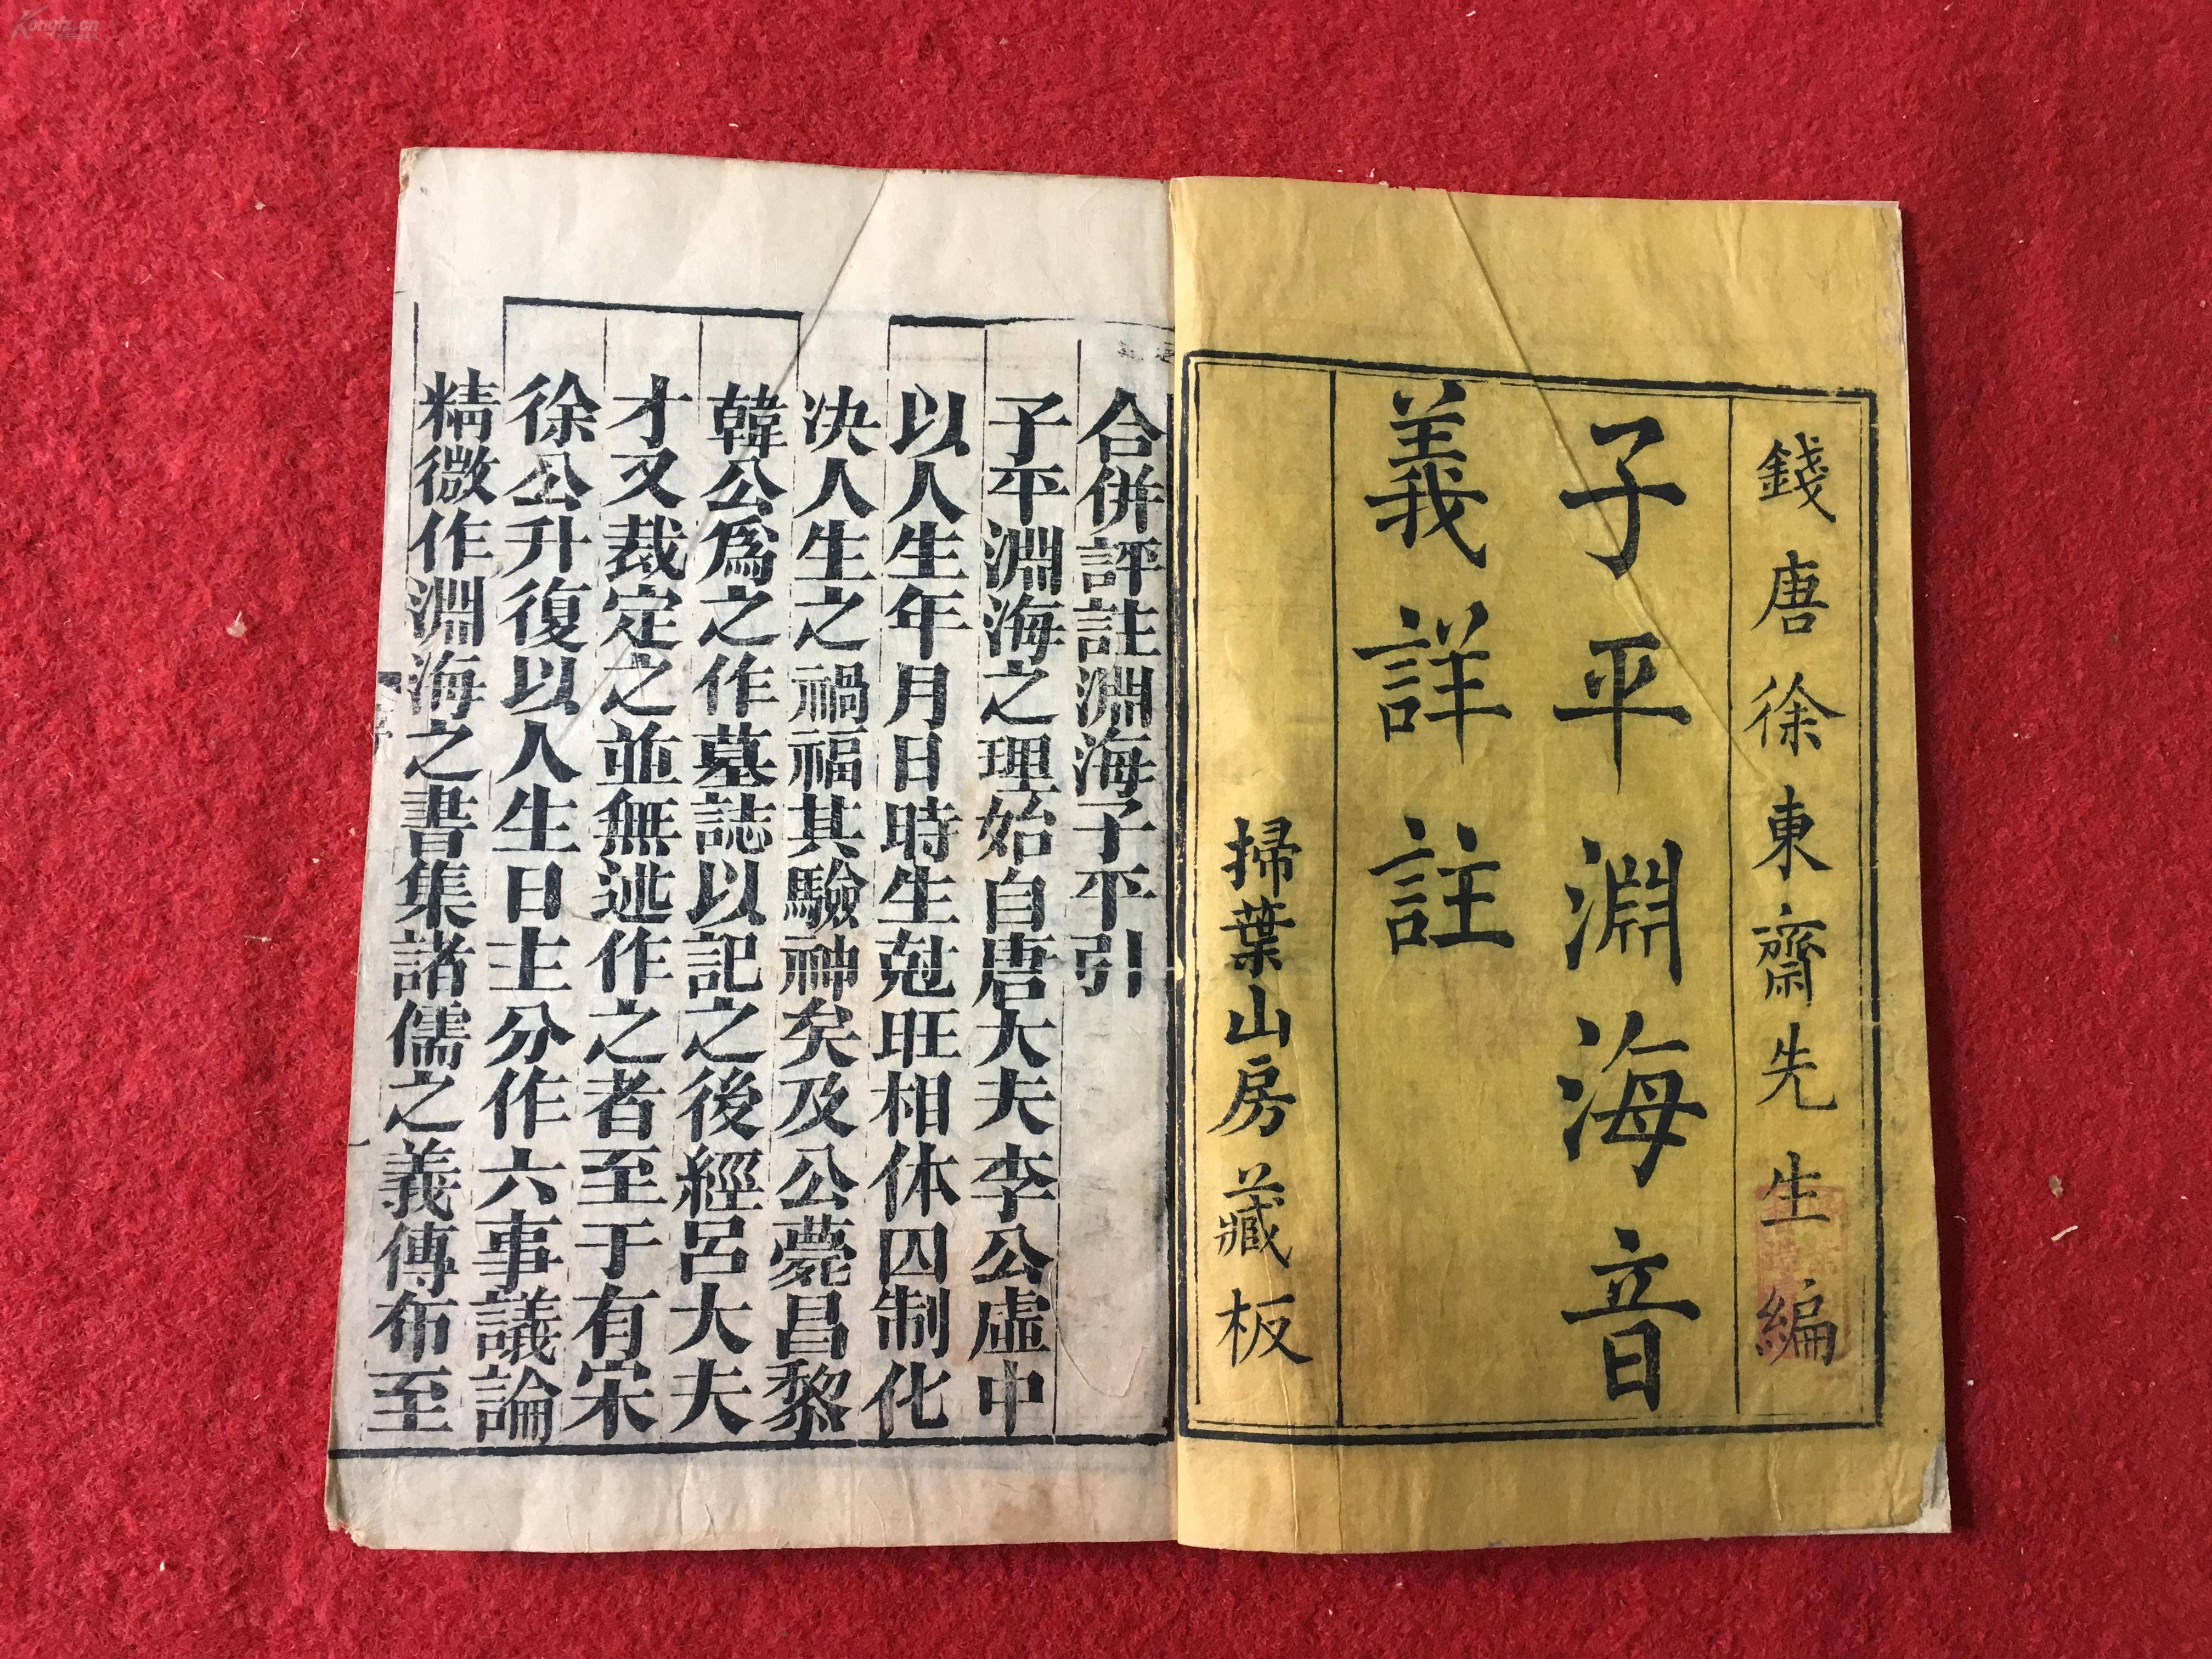 錢唐徐東齋先生編
子平淵海音
義詳註
掃葉山房藏板
合併評註淵海子平引
子平淵海之理始自唐大夫李公虛中
以人生年月日時生尅旺相休囚制化
决人生之禍福其驗神矣及公薨昌黎
韓公爲之作墓誌以記之後經呂大夫
才又裁定之並無述作之者至于有宋
徐公升復以人生日主分作六事議論
精微作淵海之書集諸儒之義傳布至
Kongfz.cn